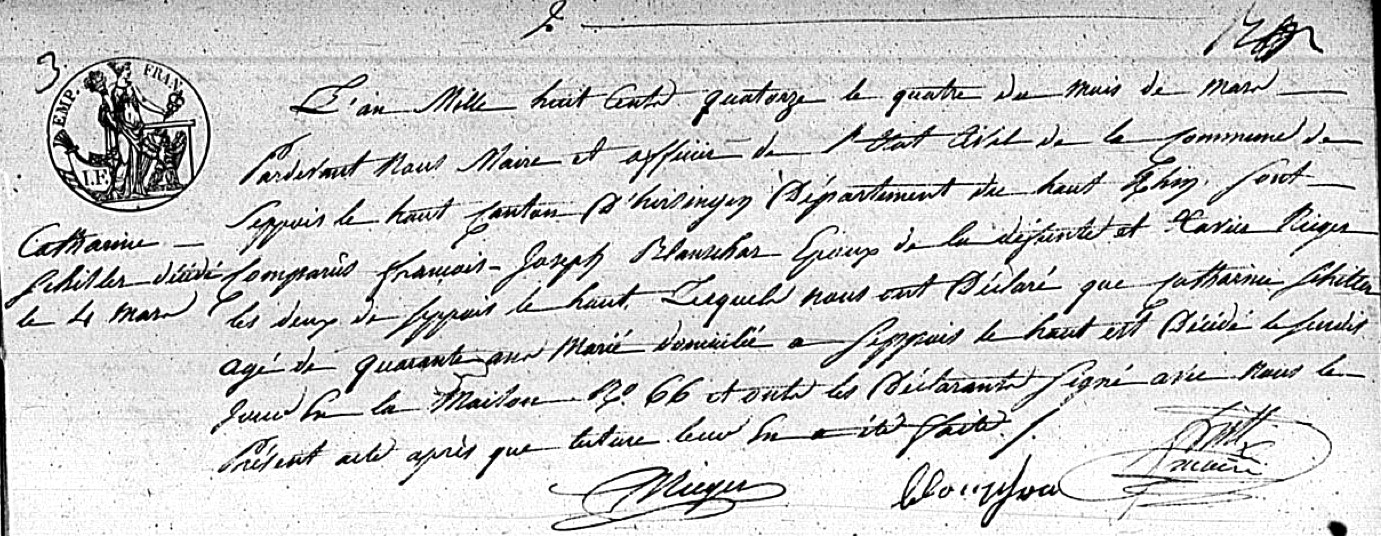 3.
EMP. FRAN.
I.F.
L'an Mille huit Cents quatorze le quatre du mois de mars
Pardevant Nous Maire et officier de l'Etat Civil de la Commune de
Seppois le haut Canton D'hirsingen Département du haut Rhin. Sont
Comparus François-Joseph Blanschar Epoux de la défunte et Xavier Rieger
les deux de Seppois le haut. Lesquels nous ont Déclaré que Catharine Schiller
agé de quarante ans Marié domicilié a Seppois le haut est Décédé le susdit
Jour En la Maison No. 66 et onts les Déclarants Signé avec Nous le
Présent acte après que lecture leur En a été faite /.
Catharine
Schiller décédé
le 4 mars
Rieger
maire